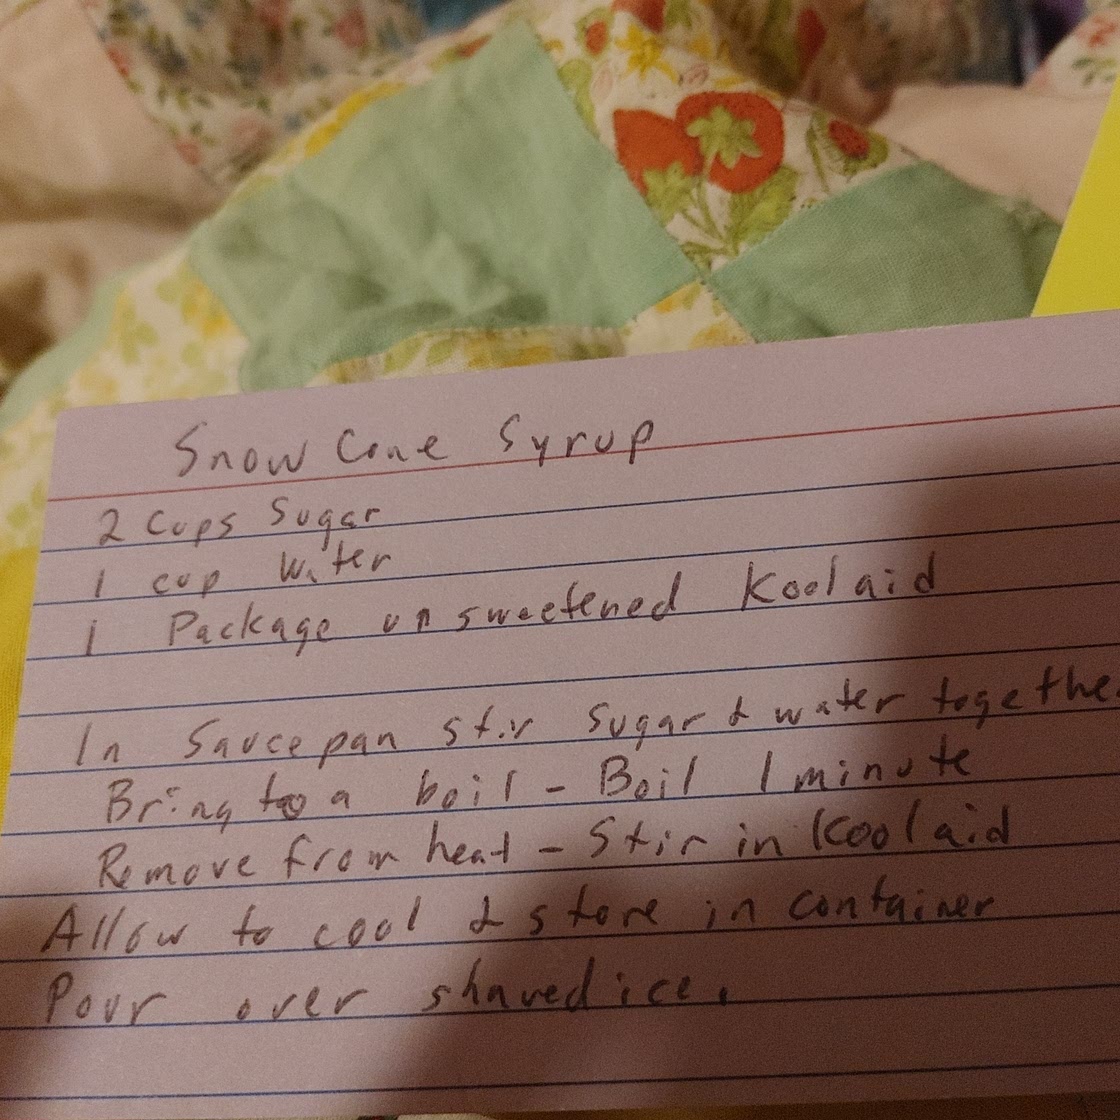 Snow Cone Syrup
2 cups Sugar
1 cup Water
1 Package unsweetened Koolaid
In Saucepan stir sugar & water togethe
Bring to a boil - Boil 1 minute
Remove from heat - Stir in Koolaid
Allow to cool & store in container
Pour over shaved ice.